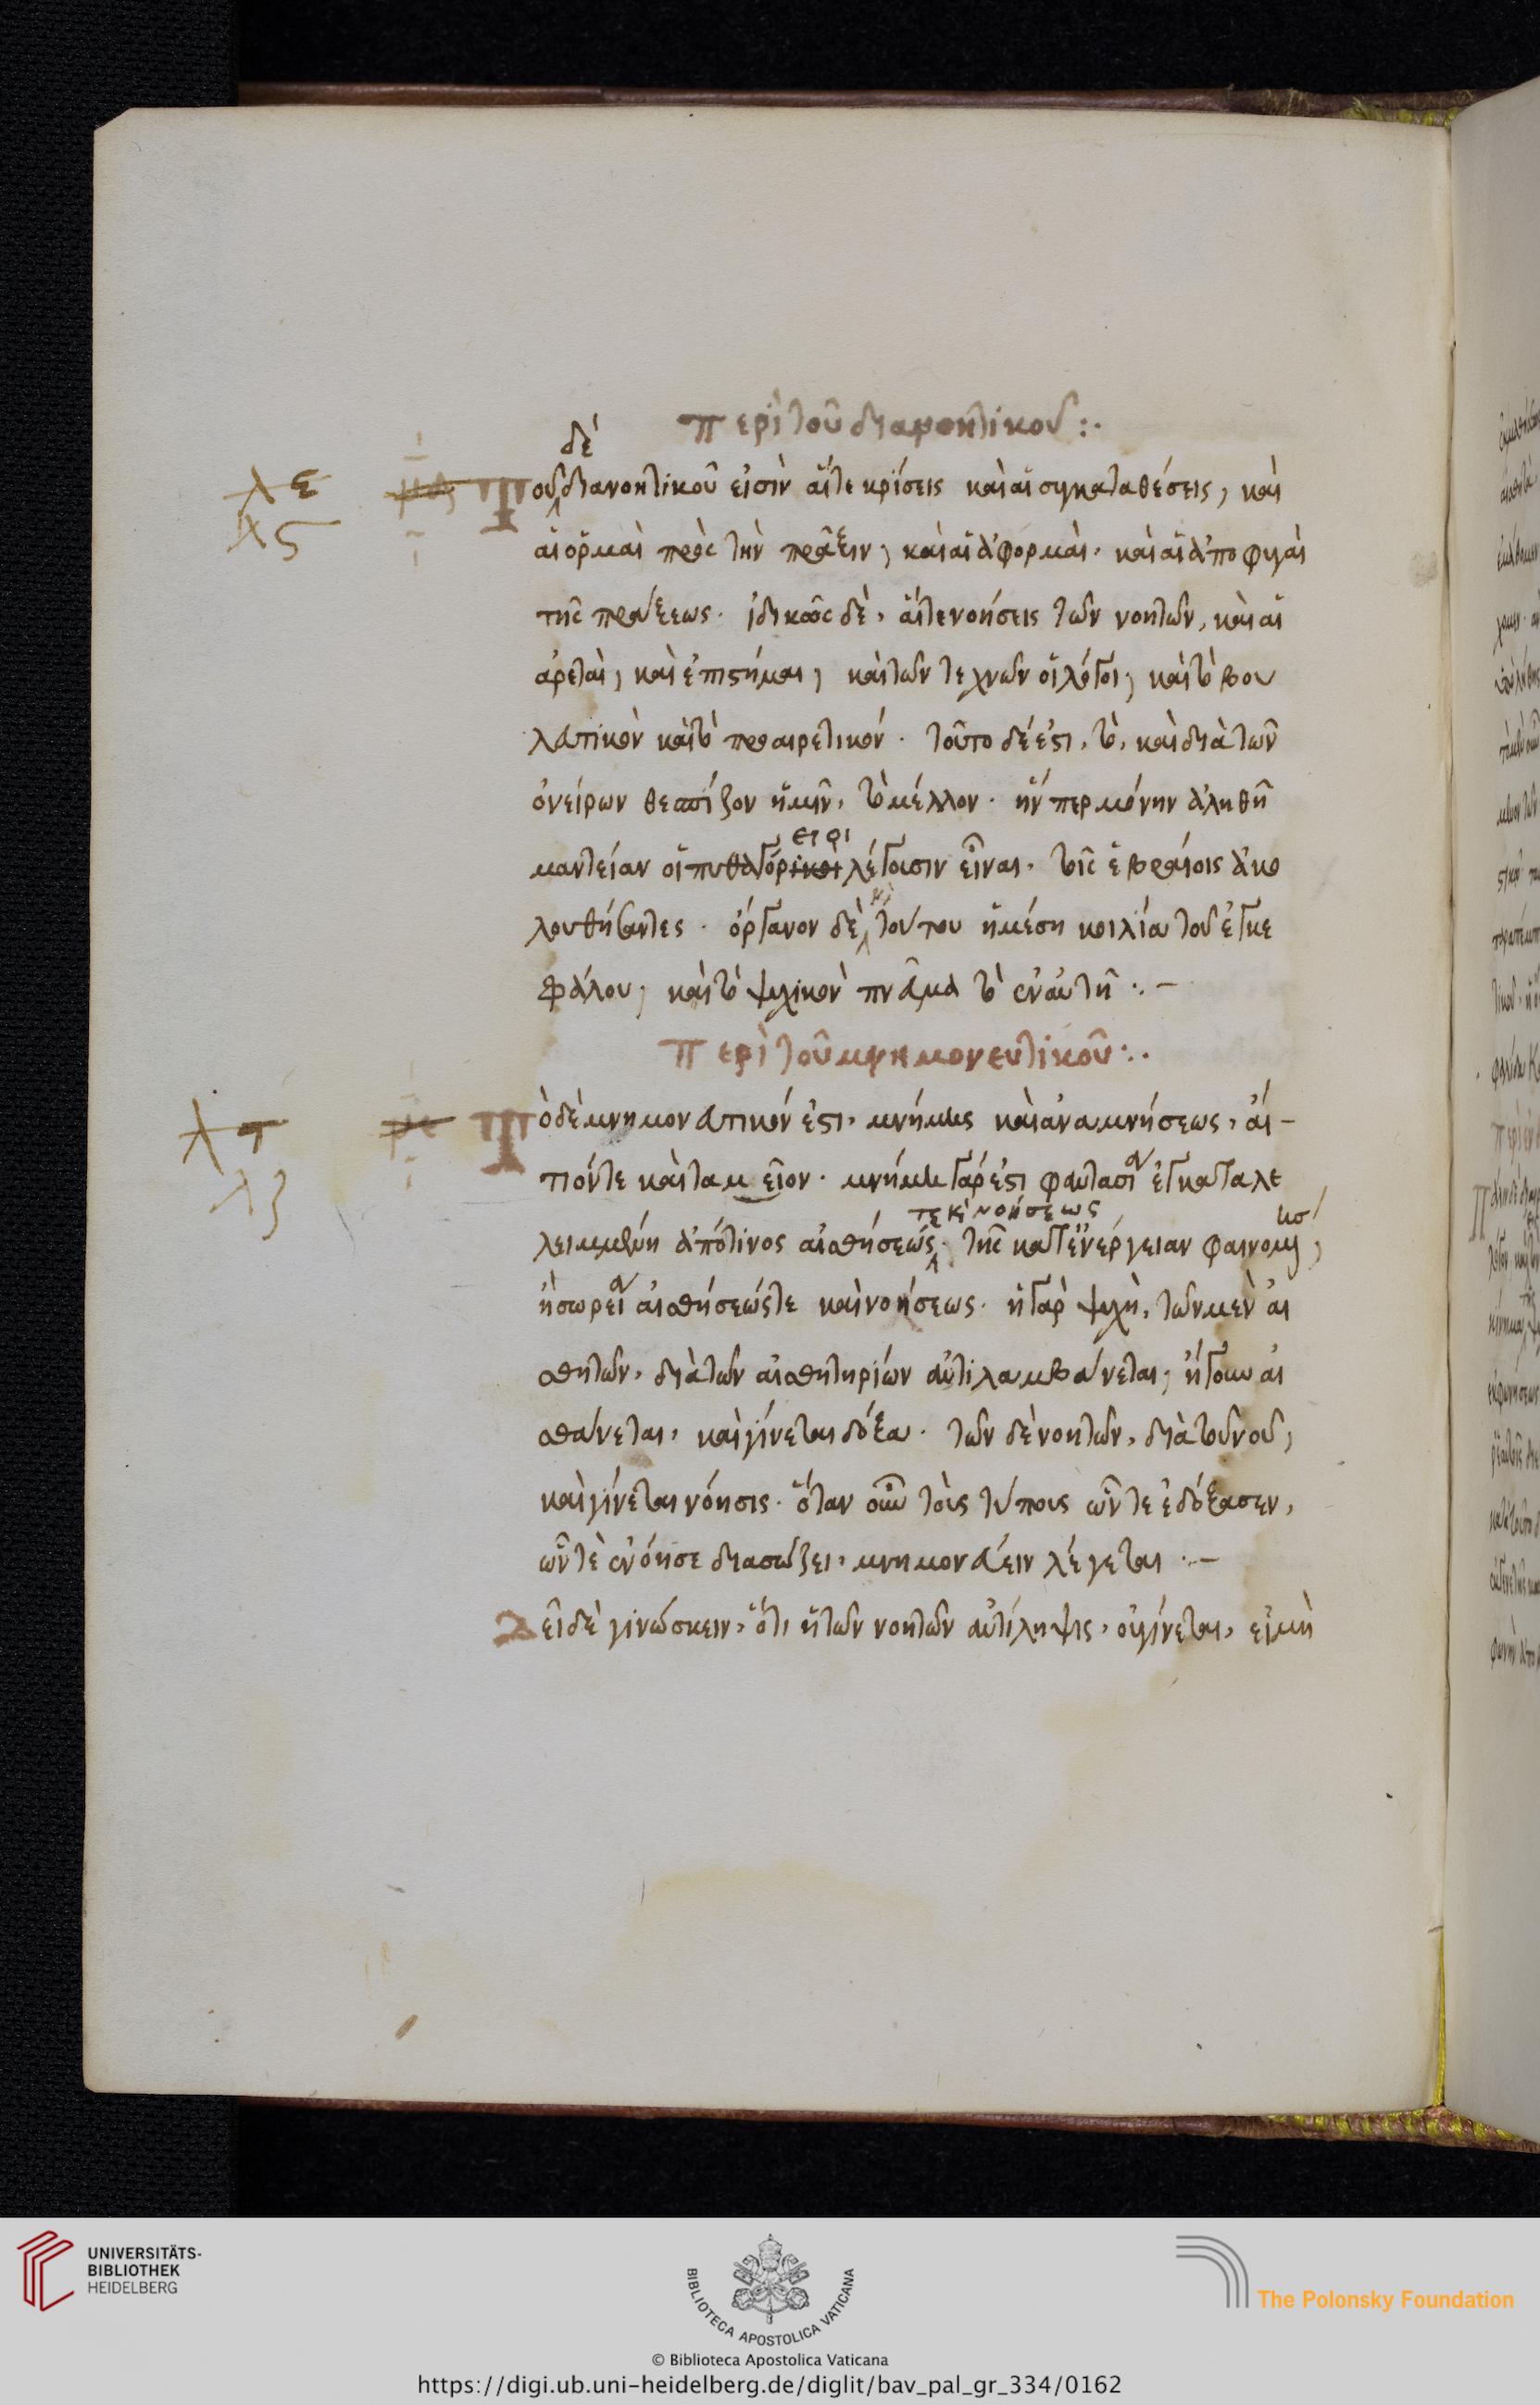 περὶ τοῦ διανοητικοῦ :·
δέ
λε
Τοῦ διανοητικοῦ εἰσὶν αἵτε κρίσεις καὶ αἱ συγκαταθέσεις, καὶ
λς
αἱ ὁρμαὶ πρὸς τὴν πρᾶξιν, καὶ αἱ ἀφορμαὶ· καὶ αἱ ἀποφυγαὶ
τῆς πράξεως· ἰδικῶς δὲ, αἵτε νοήσεις τῶν νοητῶν, καὶ αἱ
ἀρεταὶ, καὶ ἐπιστήμαι, καὶ τῶν τεχνῶν οἱ λόγοι, καὶ τὸ βου
λευτικὸν καὶ τὸ προαιρετικόν· τοῦτο δέ ἐστι, τὸ, καὶ διὰ τῶν
ὀνείρων θεσπίζον ἡμῖν, τὸ μέλλον· ἥν περ μόνην ἀληθῆ
ειοι
μαντείαν οἱ πυθαγόρικοι λέγουσιν εἶναι, τοῖς ἑβραίοις ἀκο
λουθήσαντες· ὄργανον δὲ τούτου ἡ μέση κοιλία τοῦ ἐγκε
φάλου, καὶ τὸ ψυχικὸν πνεῦμα τὸ ἐν αὐτῆ :·–
περὶ τοῦ μνημονευτικοῦ :·
Τὸ δὲ μνημονευτικόν ἐστι, μνήμης καὶ ἀναμνήσεως, αἴ-
λζ
τιόν τε καὶ ταμιεῖον· μνήμη γάρ ἐστι φαντασία ἐγκαταλε
τε κὶ νοήσεως
λειμμένη ἀπό τινος αἰσθήσεώς· τῆς κατ' ἐνέργειαν φαινομένης,
ἢ σωρεία αἰσθήσεώς τε καὶ νοήσεως· ἡ γὰρ ψυχὴ, τῶν μὲν αἰ
σθητῶν, διὰ τῶν αἰσθητηρίων ἀντιλαμβάνεται, ἤγουν αἰ
σθάνεται, καὶ γίνεται δόξα· τῶν δὲ νοητῶν, διὰ τοῦ νοῦ,
καὶ γίνεται νόησις· ὅταν οὖν τοὺς τύπους ὧν τε ἐδόξασεν,
ὧν τὲ ἐνόησε διασώζει, μνημονεύειν λέγεται ·–
Δεῖ δὲ γινώσκειν, ὅτι ἡ τῶν νοητῶν ἀντίληψις, οὐ γίνεται, εἰ μὴ
UNIVERSITÄTS-
BIBLIOTHEK
HEIDELBERG
BIBLIOTECA APOSTOLICA VATICANA
The Polonsky Foundation
© Biblioteca Apostolica Vaticana
https://digi.ub.uni-heidelberg.de/diglit/bav_pal_gr_334/0162